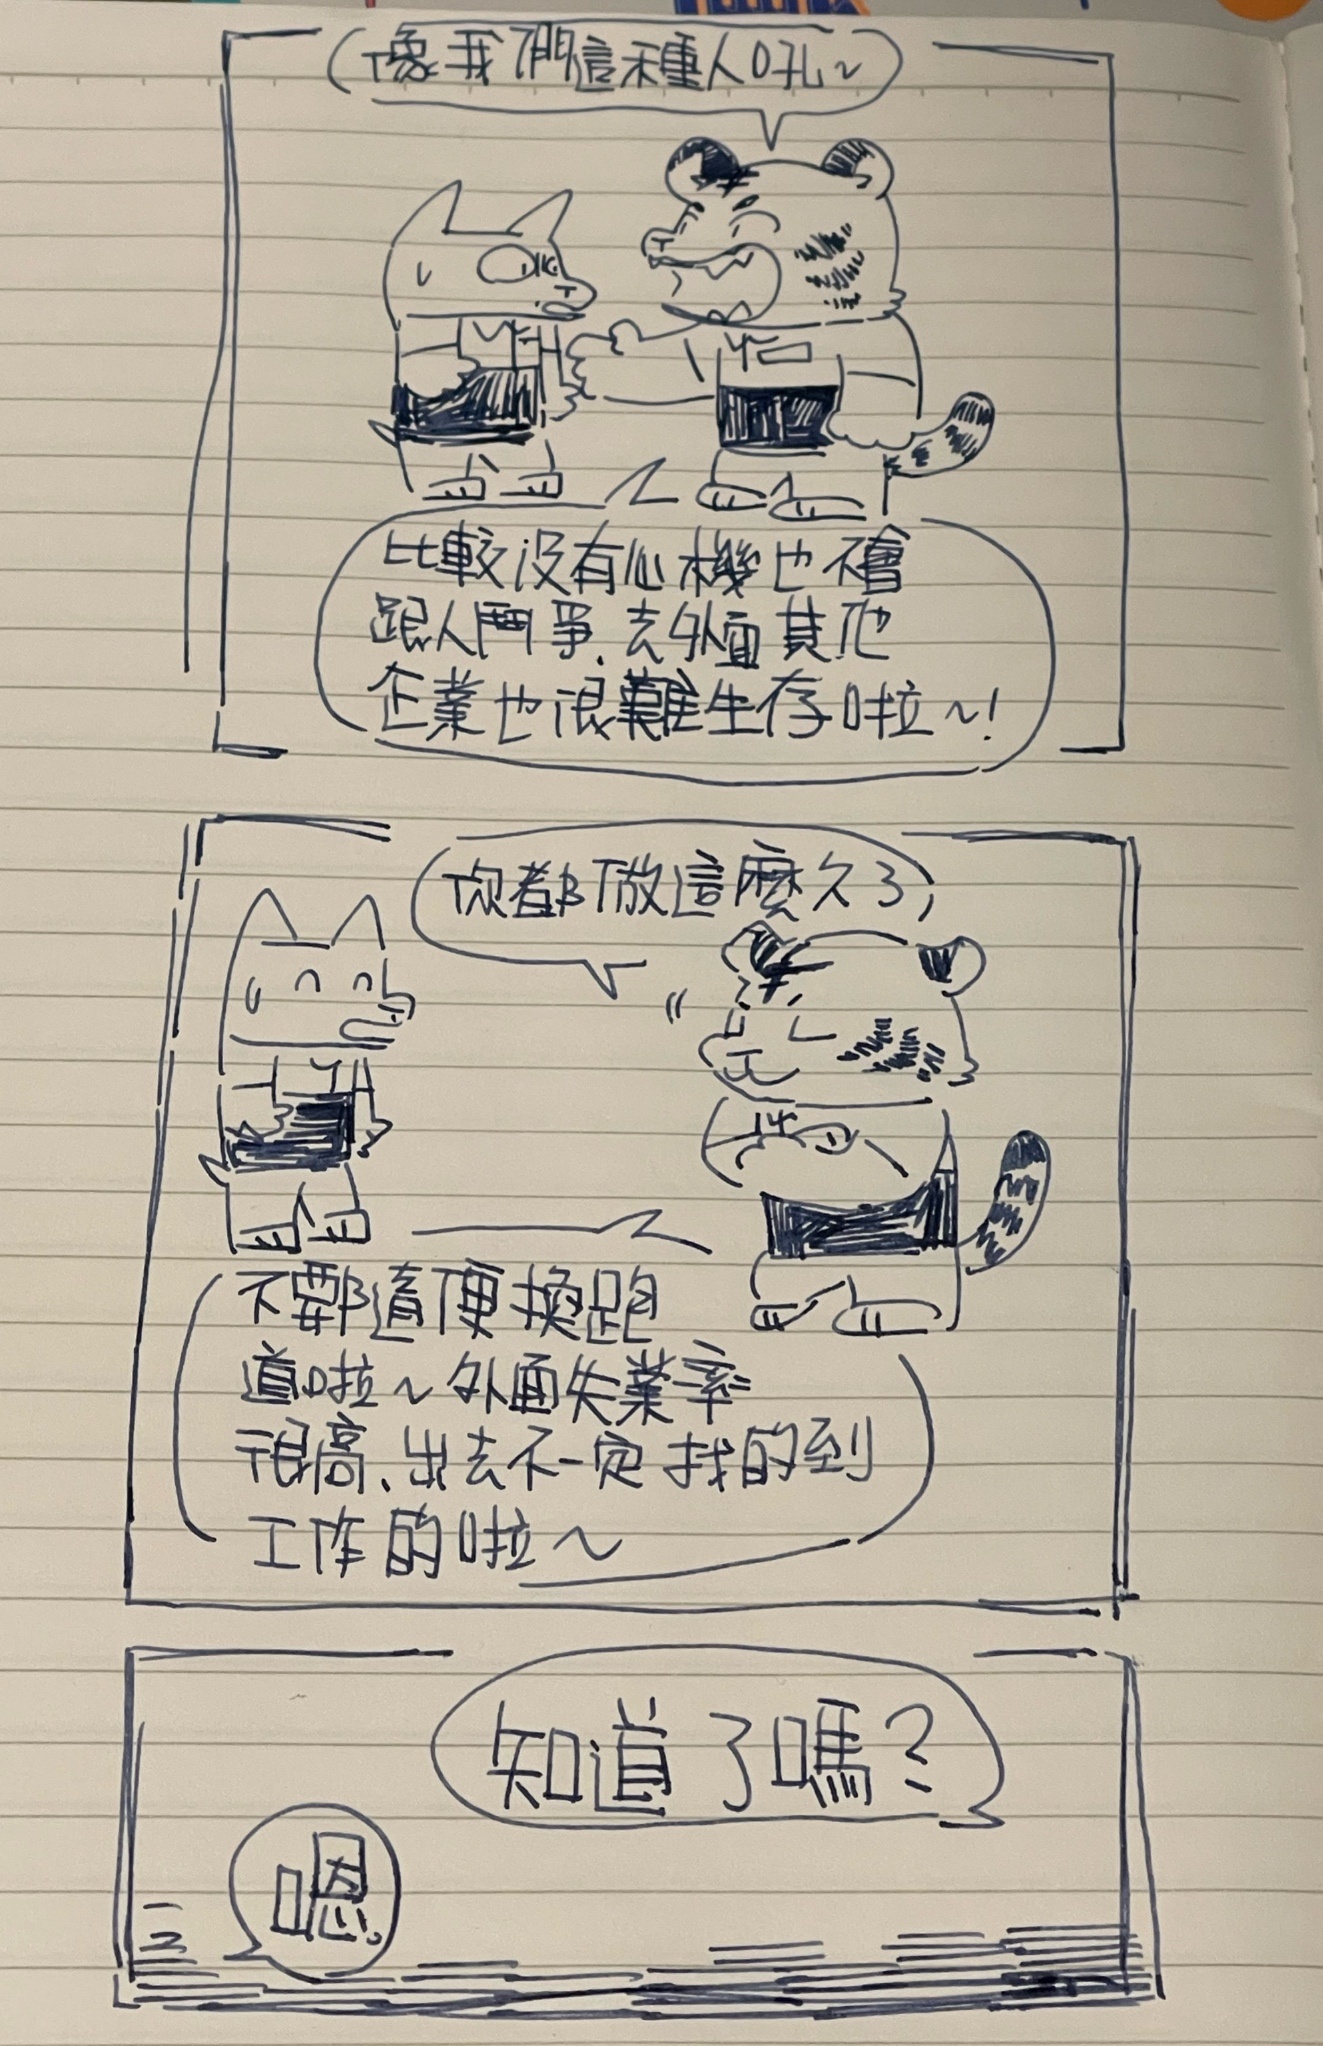 像我們這種人吼~
比較没有心機也不會
跟人鬥爭、去外面其他
企業也很難生存啦~!
你都做這麼久了,
不要隨便換跑
道啦~外面失業率
很高、出去不一定找的到
工作的啦~
知道了嗎?
嗯。